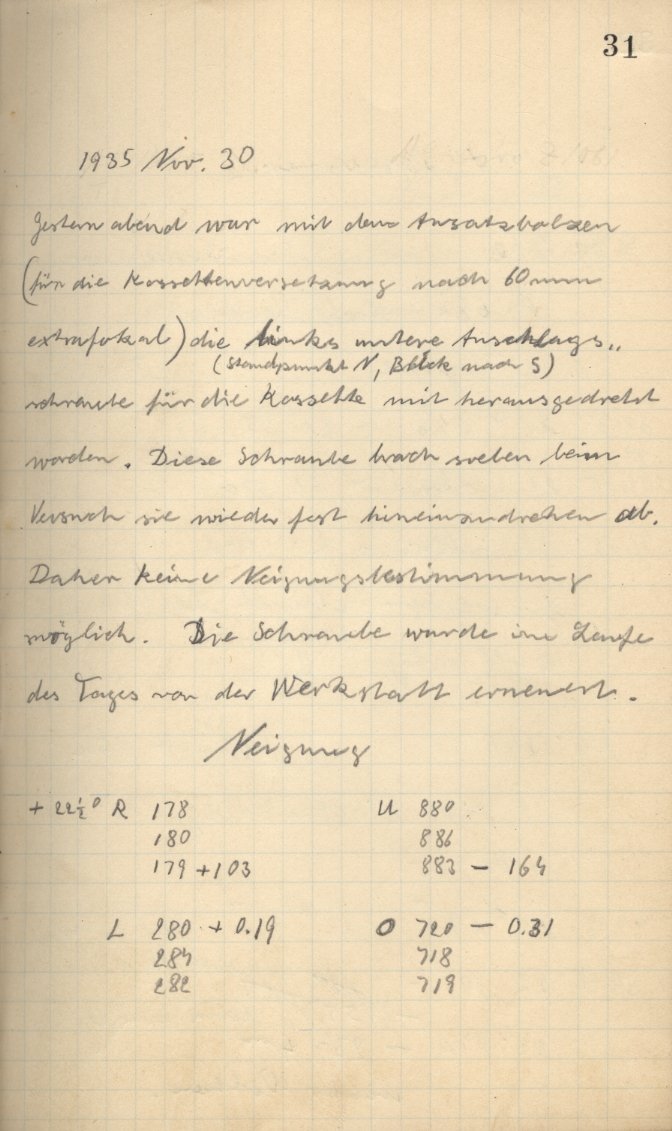 31
1935 Nov. 30
Gestern abend war mit dem Ansatzbolzen
(für die Kassettenversetzung nach 60 mm
extrafokal) die links untere Anschlags„
(Standpunkt N, Blick nach S)
schraube für die Kassette mit herausgedreht
worden. Diese Schraube brach soeben beim
Versuch sie wieder fest hineinzudrehen ab.
Daher keine Neigungsbestimmung
möglich. Die Schraube wurde im Laufe
des Tages von der Werkstatt erneuert.
Neigung
+ 22½° R 178 U 880
180 886
179 + 103 883 — 164
L 280 + 0.19 O 720 — 0.31
284 718
282 719